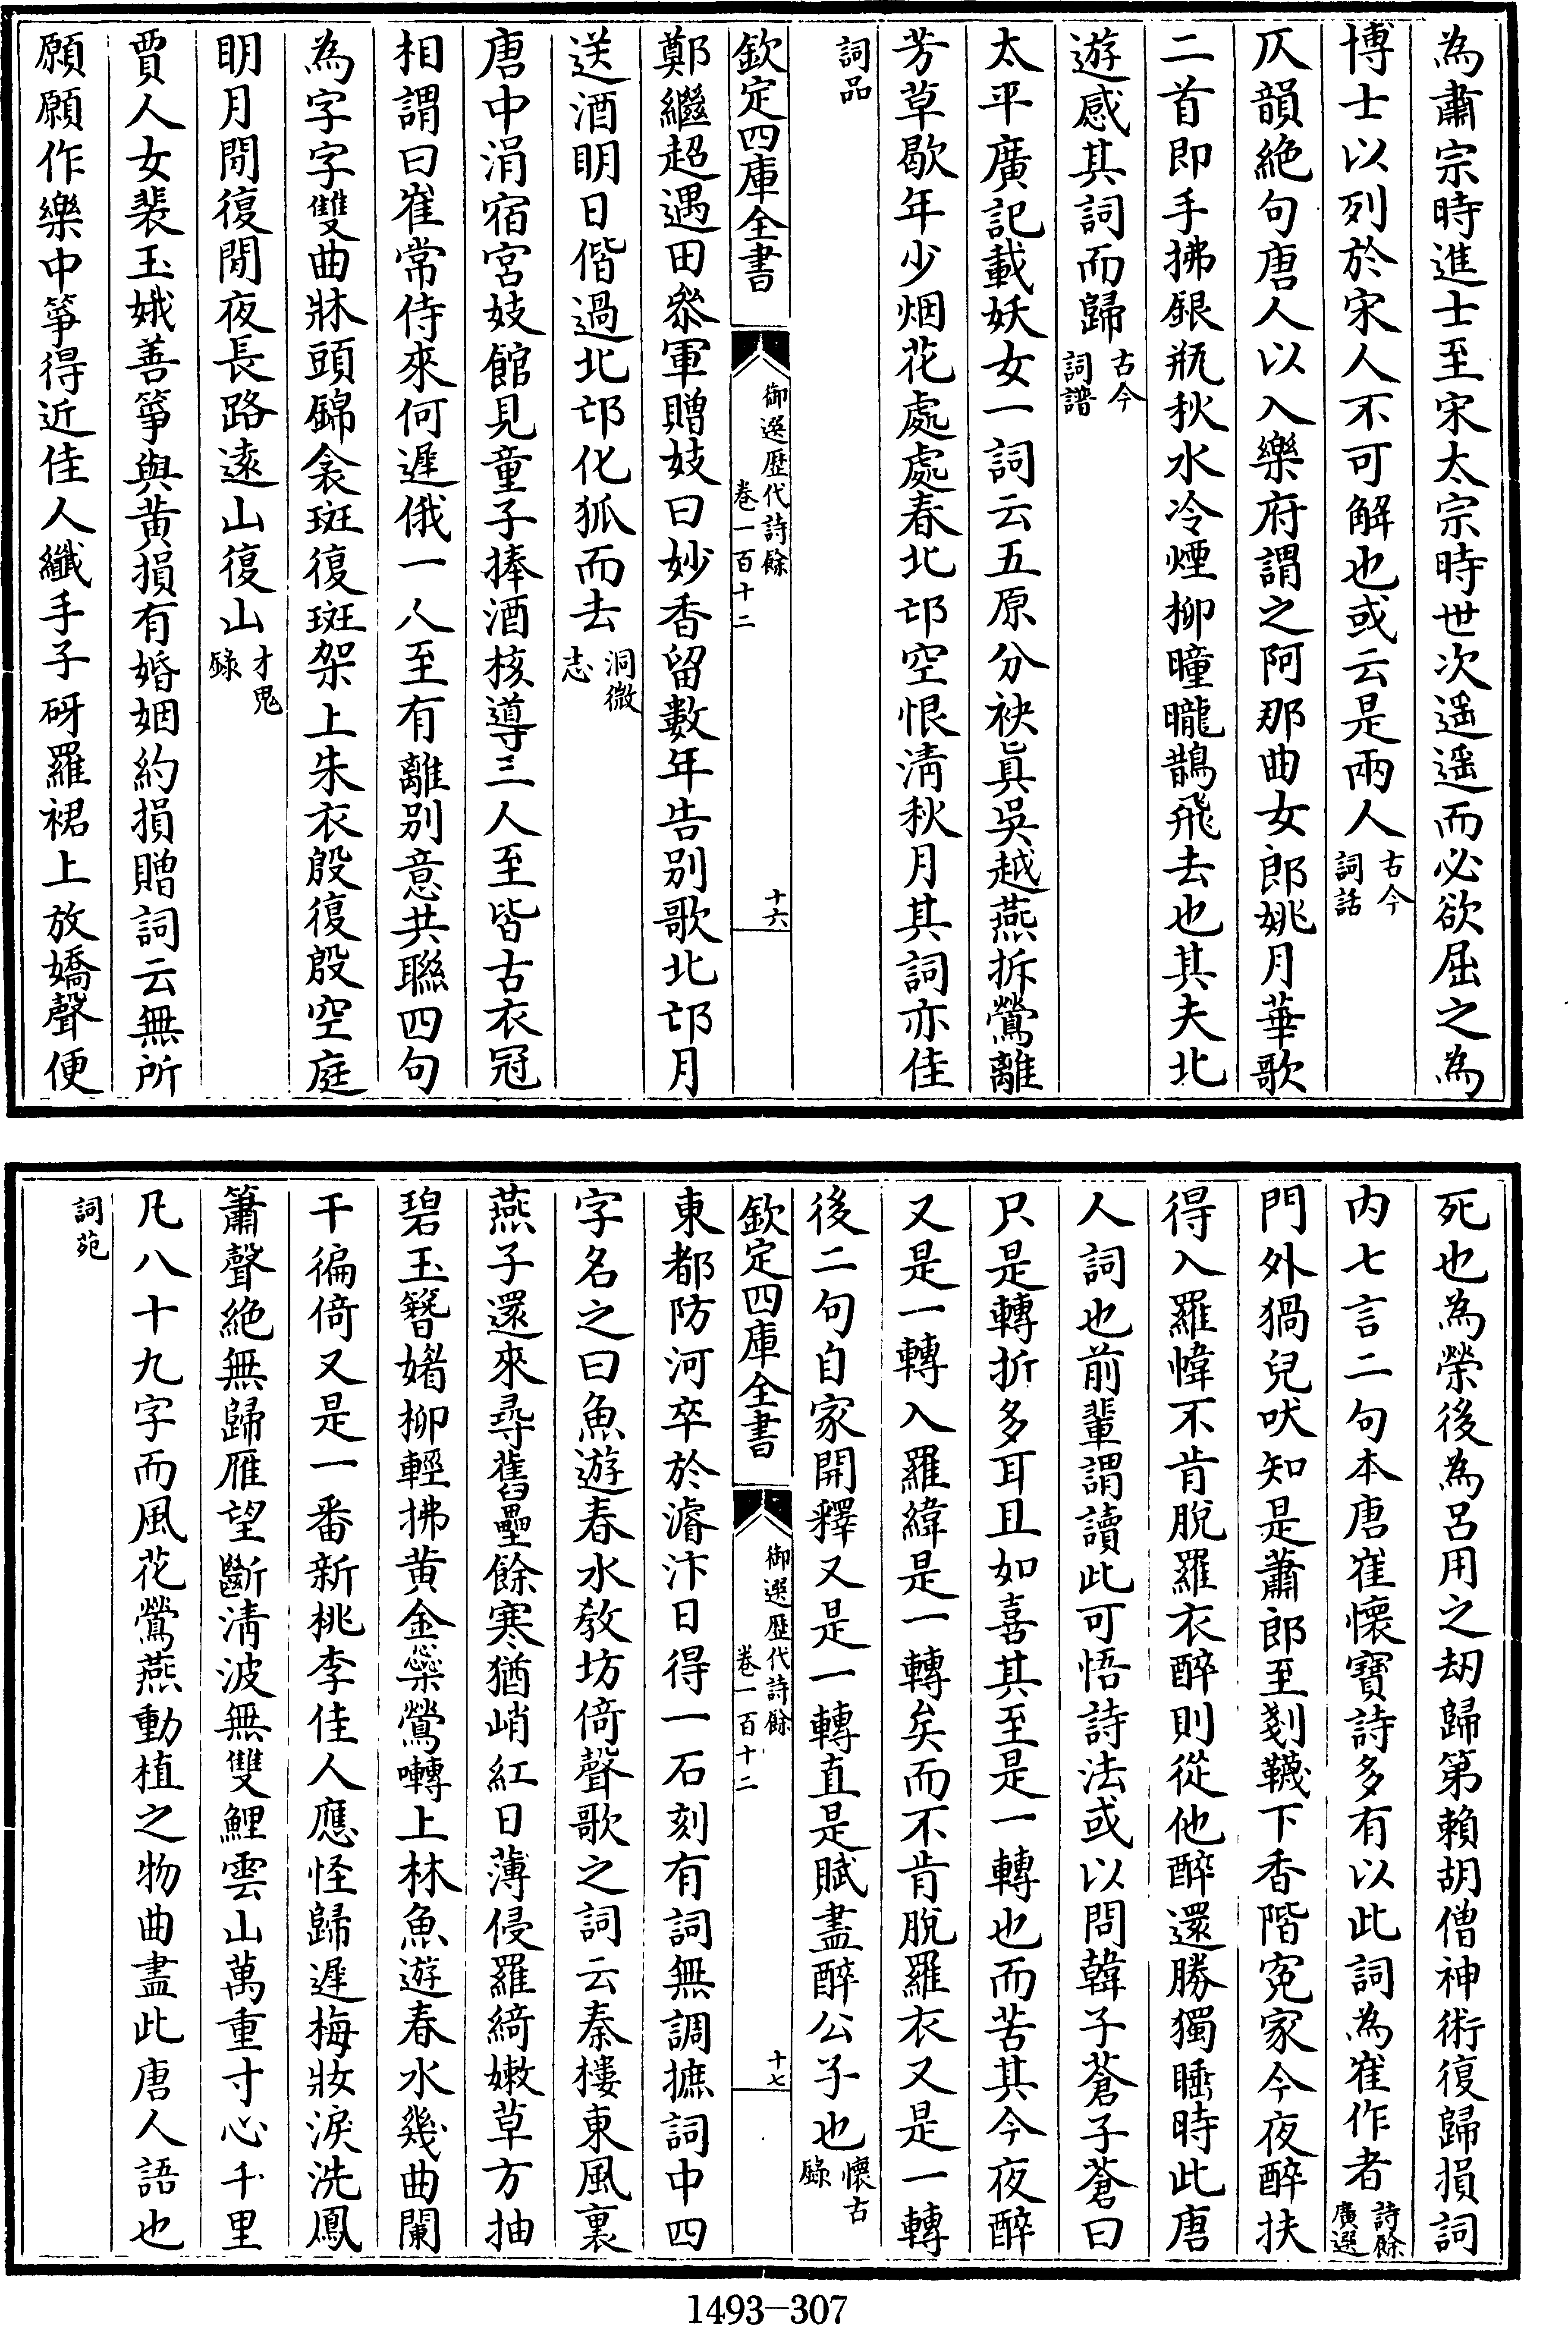 為肅宗時進士至宋太宗時世次遥遥而必欲屈之為
博士以列於宋人不可解也或云是兩人古今詞話
仄韻絶句唐人以入樂府謂之阿那曲女郎姚月華歌
二首即手拂銀瓶秋水冷煙柳曈曨鵲飛去也其夫北
遊感其詞而歸古今詞譜
太平廣記載妖女一詞云五原分袂眞吳越燕拆鶯離
芳草歇年少烟花處處春北邙空恨清秋月其詞亦佳
詞品
欽定四庫全書
御選歴代詩餘
卷一百十二
十六
鄭繼超遇田叅軍贈妓曰妙香留數年告别歌北邙月
送酒明日偕過北邙化狐而去洞微志
唐中涓宿宮妓館見童子捧酒核導三人至皆古衣冠
相謂曰崔常侍來何遲俄一人至有離别意共聯四句
為字字雙曲牀頭錦衾斑復斑架上朱衣殷復殷空庭
明月閒復閒夜長路遠山復山才鬼錄
賈人女裴玉娥善箏與黄損有婚姻約損贈詞云無所
願願作樂中箏得近佳人纖手子砑羅裙上放嬌聲便
死也為榮後為呂用之刼歸第賴胡僧神術復歸損詞
内七言二句本唐崔懷寶詩多有以此詞為崔作者詩餘廣選
門外猧兒吠知是蕭郎至剗韈下香階寃家今夜醉扶
得入羅幃不肯脫羅衣醉則從他醉還勝獨睡時此唐
人詞也前輩謂讀此可悟詩法或以問韓子蒼子蒼曰
只是轉折多耳且如喜其至是一轉也而苦其今夜醉
又是一轉入羅緯是一轉矣而不肯脫羅衣又是一轉
後二句自家開釋又是一轉直是賦盡醉公子也懷古錄
欽定四庫全書
御選歴代詩餘
卷一百十二
十七
東都防河卒於濬汴日得一石刻有詞無調摭詞中四
字名之曰魚遊春水教坊倚聲歌之詞云秦樓東風裏
燕子還來尋舊壘餘寒猶峭紅日薄侵羅綺嫩草方抽
碧玉簪媘柳輕拂黄金蘂鶯囀上林魚遊春水幾曲闌
干徧倚又是一番新桃李佳人應怪歸遲梅妝淚洗鳳
簫聲絶無歸雁望斷清波無雙鯉雲山萬重寸心千里
凡八十九字而風花鶯燕動植之物曲盡此唐人語也
詞苑
1493—307